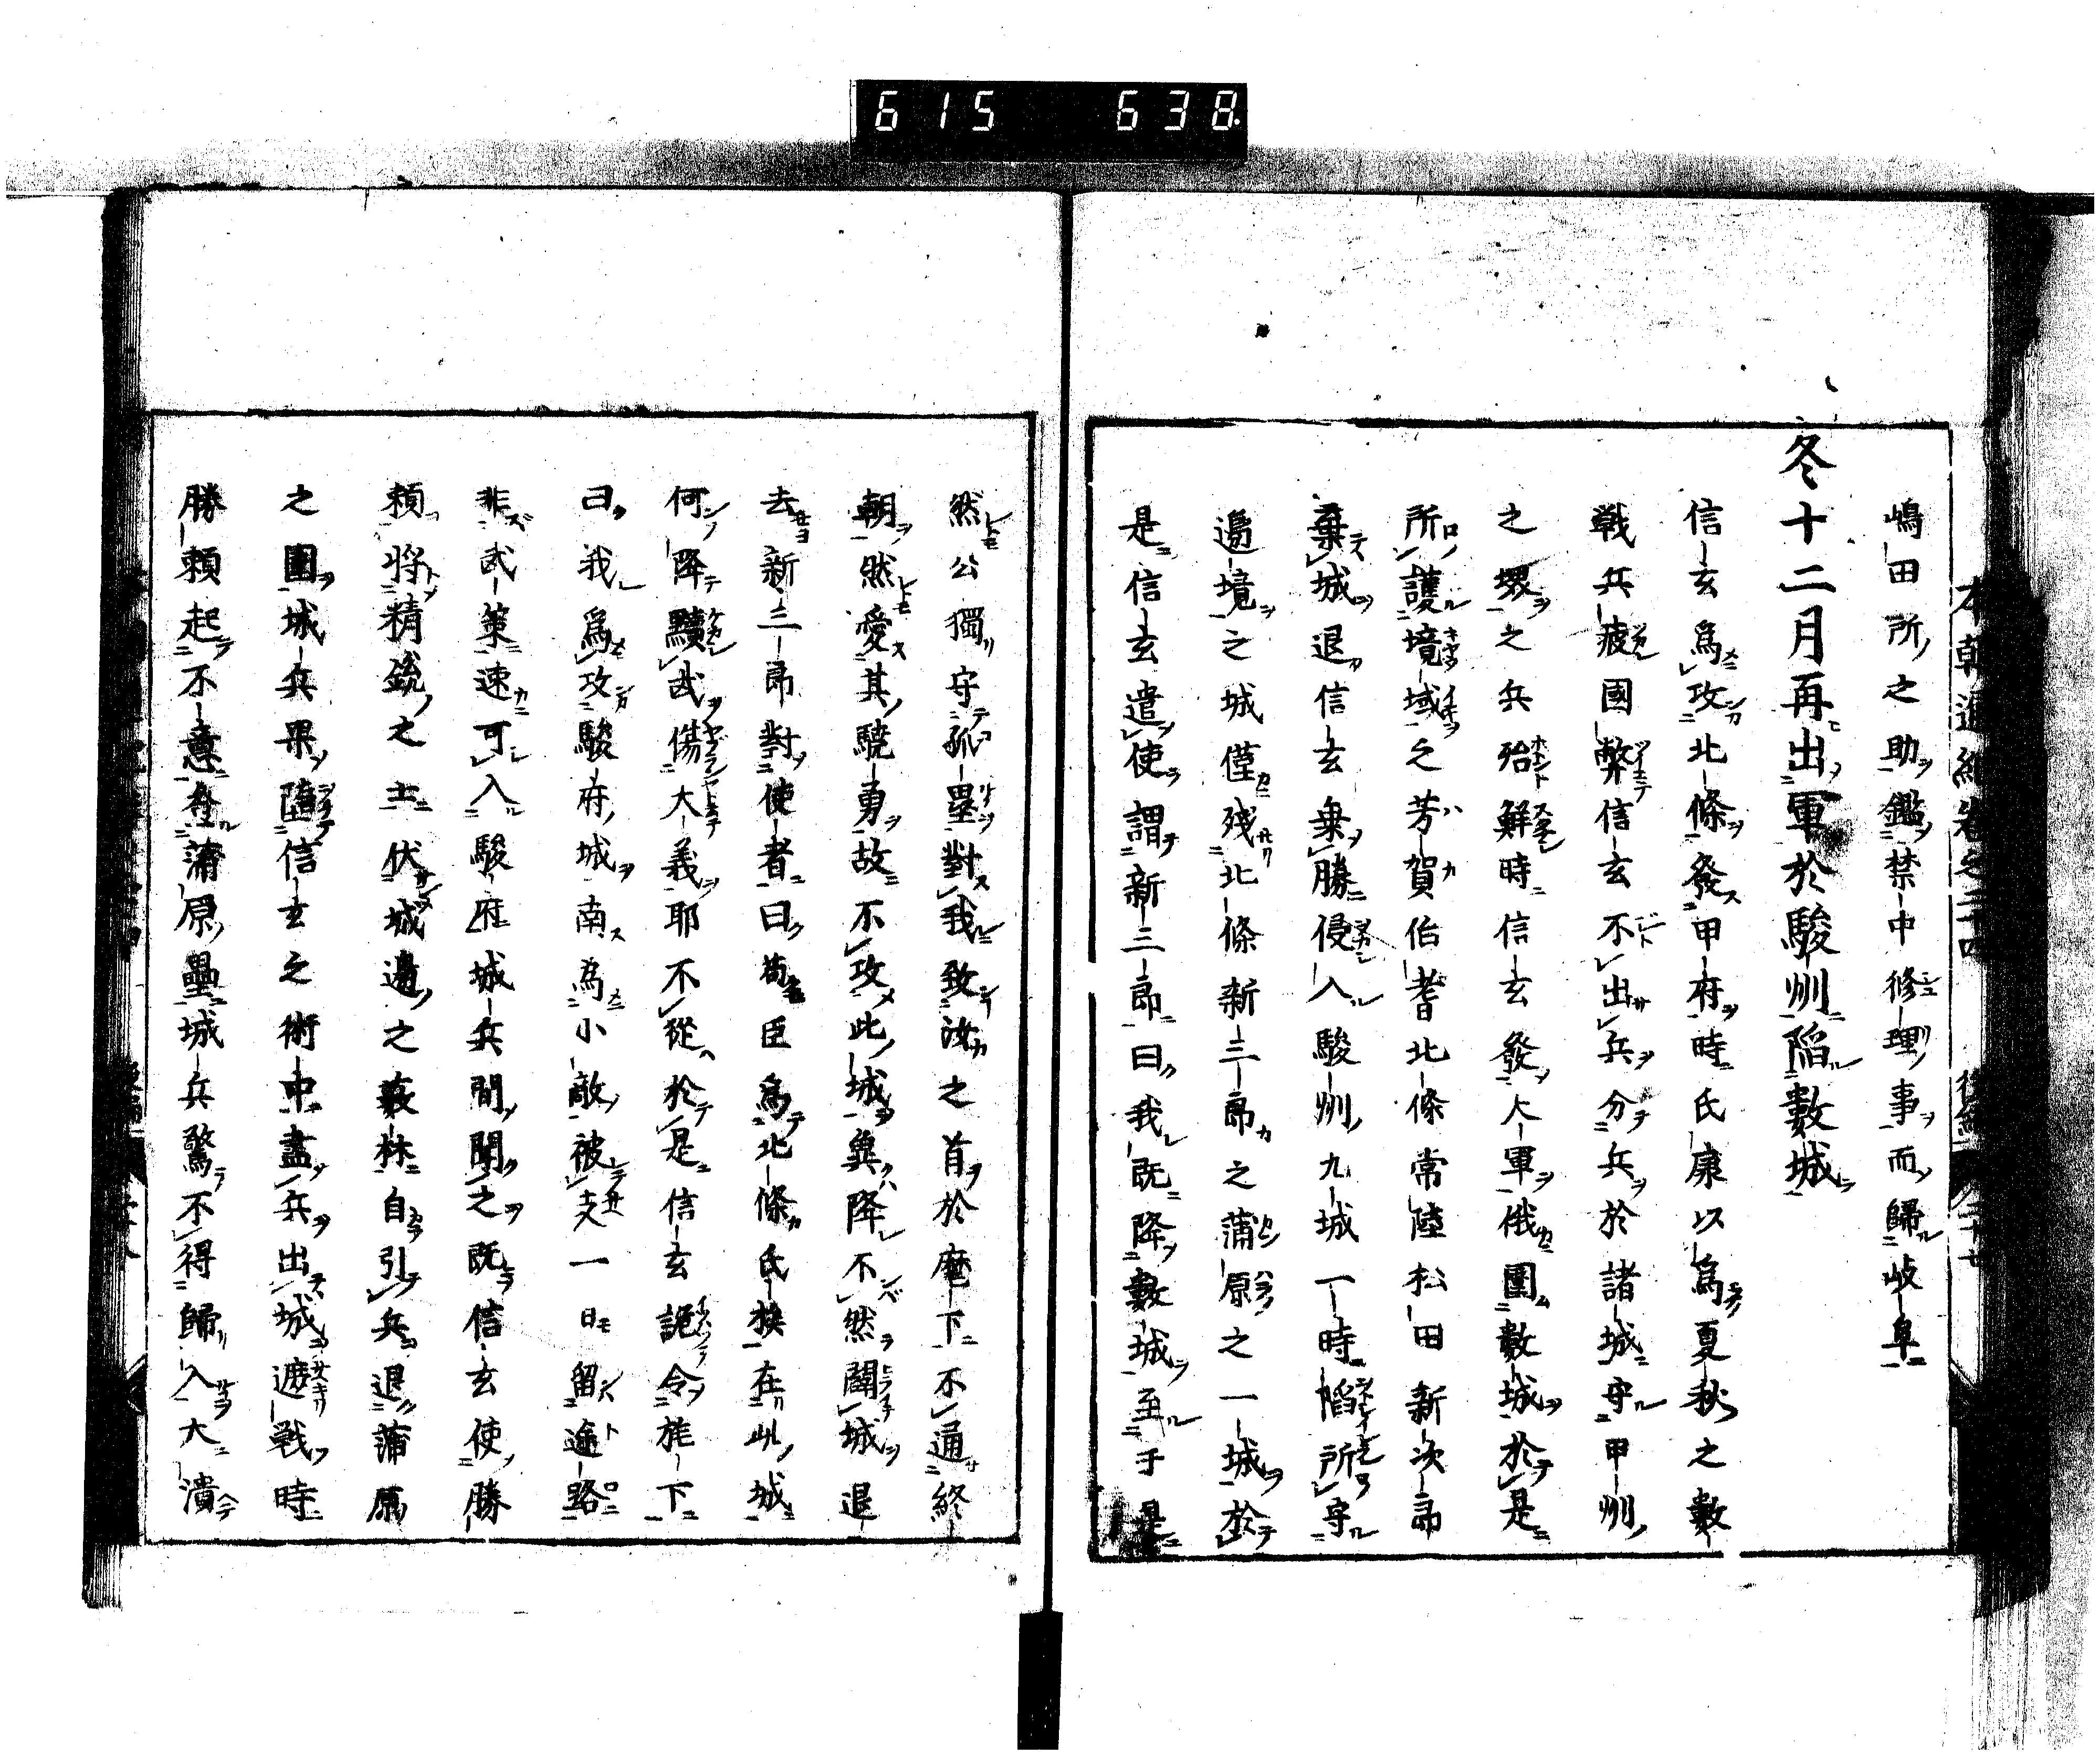 615 638
嶋田所之助鑑禁中修理事而歸岐阜
冬十二月再出軍於駿州陥數城
信玄爲攻北條發甲府時氏康以爲夏秋之數
戰兵疲國弊信玄不出兵分兵於諸城守甲州
之堺之兵殆解時信玄發大軍俄圍數城於是
所護境域之芳賀伯耆北條常陸松田新次郎
棄城退信玄乗勝侵入駿州九城一時陥所守
邊境之城僅残北條新三郎之蒲原之一城於
是信玄遣使謂新三郎曰我既降數城至于是
然公獨守孤壘對我致汝之首於麾下不通終
朝然愛其驍勇故不攻此城奠降不然闢城退
去新三郎對使者曰苟臣爲北條氏族在此城
何降黷武傷大義耶不從於是信玄詭令旄下
曰我爲攻駿府城南為小敵被支一日留途路
非武策速可入駿府城兵間聞之既信玄使勝
頼將精銳之士伏城邊之藪林自引兵退蒲原
之圍城兵果陸信玄之術中盡兵出城遮戰時
勝頼起不意登蒲原壘城兵驚不得歸入大潰